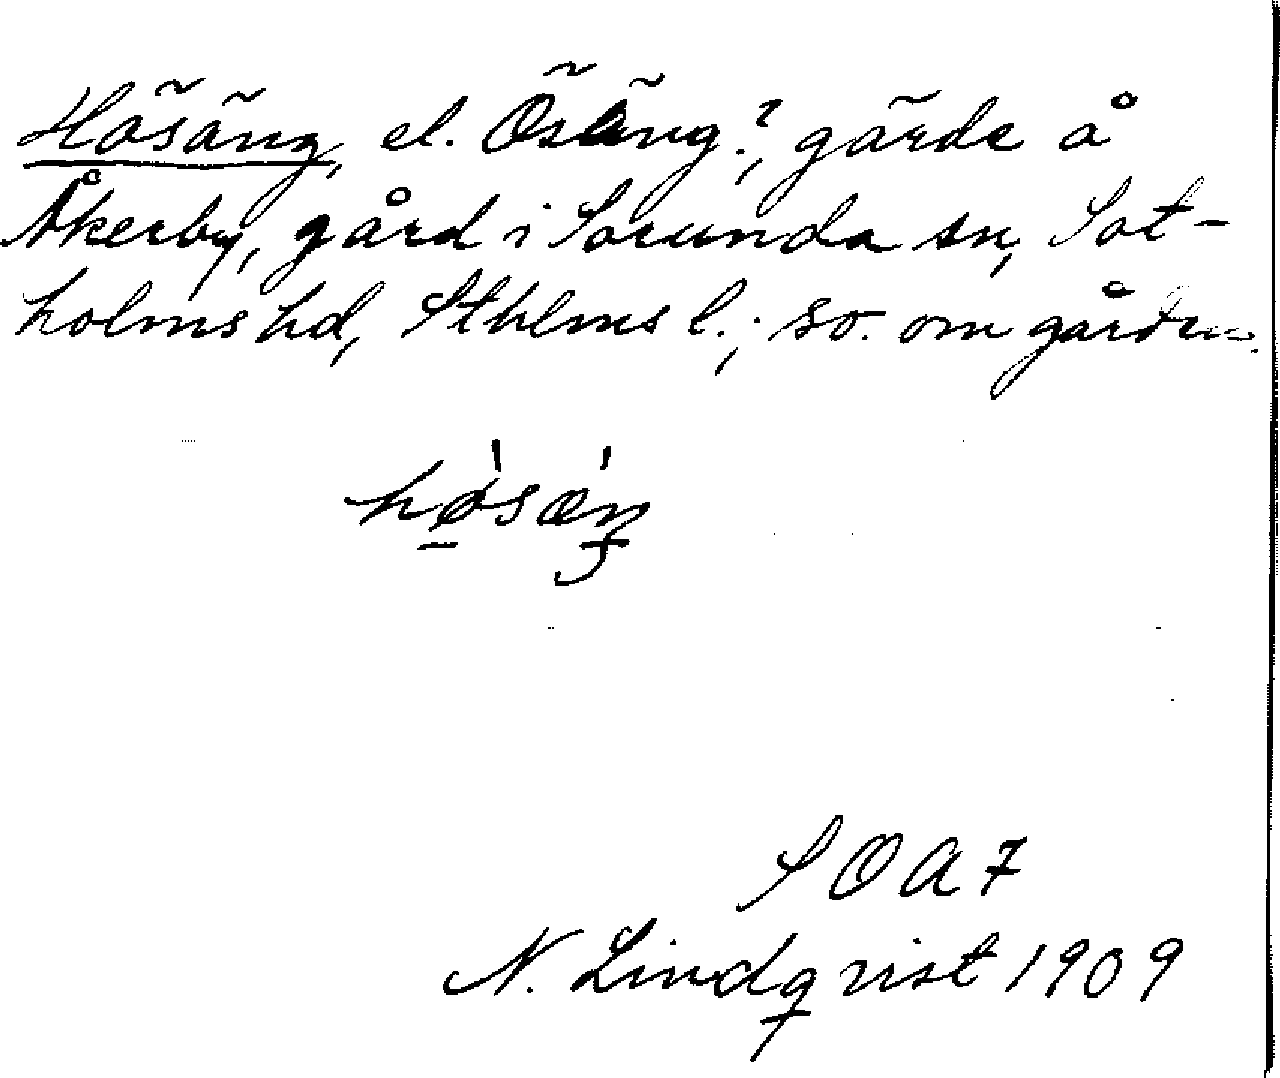 Hösäng, el. Ösäng?, gärde å
Åkerby, gård i Sorunda sn, Sot-
holms hd, Sthlms l.; so. om gården.
hø̱sæŋ
SOA 7
N. Lindqvist 1909